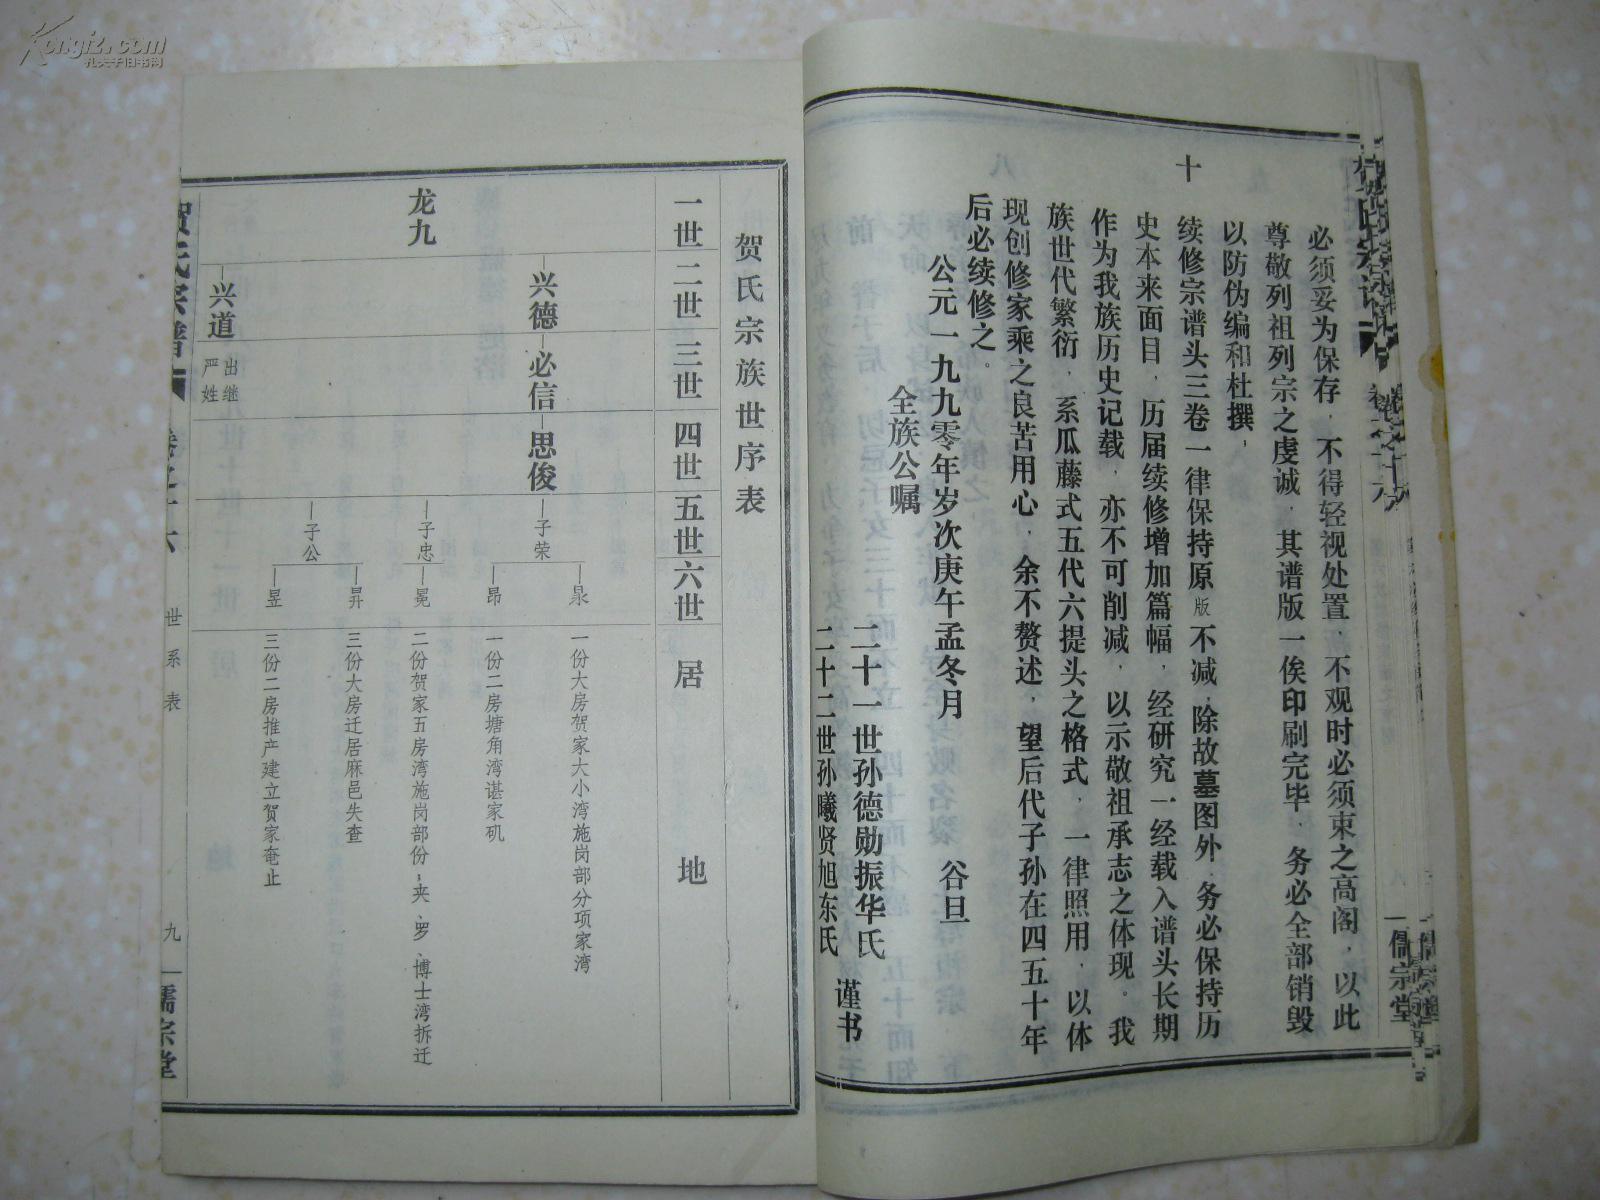 Kongfz.com
孔夫子旧书网
必须妥为保存，不得轻视处置，不观时必须束之高阁，以此
尊敬列祖列宗之虔诚，其谱版一俟印刷完毕，务必全部销毁
以防伪编和杜撰，
十
续修宗谱头三卷一律保持原版不减，除故墓图外，务必保持历
史本来面目，历届续修增加篇幅，经研究一经载入谱头长期
作为我族历史记载，亦不可削减，以示敬祖承志之体现。我
族世代繁衍，系瓜藤式五代六提头之格式，一律照用，以体
现创修家乘之良苦用心，余不赘述，望后代子孙在四五十年
后必续修之。
公元一九九零年岁次庚午孟冬月 谷旦
全族公嘱
二十一世孙德勋振华氏
二十二世孙曦贤旭东氏 谨书
儒宗堂
贺氏宗族世序表
一世 二世 三世 四世 五世 六世 居 地
龙九
兴德 必信 思俊 子荣 晃 一份大房贺家大小湾施岗部分项家湾
昂 一份二房塘角湾谌家矶
子忠 冕 二份贺家五房湾施岗部份，夹、罗、博士湾拆迁
子公 昇 三份大房迁居麻邑失查
昱 三份二房推产建立贺家奄止
兴道 出继
严姓
贺氏宗谱 卷之十六 世系表 九 儒宗堂